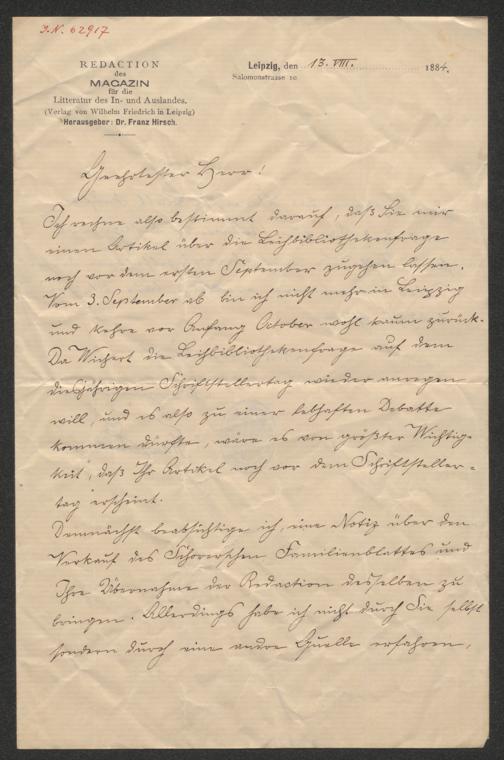 J.N. 62917
REDACTION
des
MAGAZIN
für die
Litteratur des In- und Auslandes.
(Verlag von Wilhelm Friedrich in Leipzig)
Herausgeber: Dr. Franz Hirsch.
Leipzig, den 13. VIII. 1884.
Salomonstrasse 10
Geehrtester Herr!
Ich rechne also bestimmt darauf, daß Sie mir
einen Artikel über die Leihbibliothekenfrage
noch vor dem ersten September zugehen lassen.
Vom 3. September ab bin ich nicht mehr in Leipzig
und kehre vor Anfang October wohl kaum zurück.
Da Wichert die Leihbibliothekenfrage auf dem
diesjährigen Schriftstellertag wieder anregen
will, und es also zu einer lebhaften Debatte
kommen dürfte, wäre es von größter Wichtig-
keit, daß Ihr Artikel noch vor dem Schriftsteller-
tag erscheint.
Demnächst beabsichtige ich, eine Notiz über den
Verkauf des Schorerschen Familienblattes und
Ihre Übernahme der Redaction desselben zu
bringen. Allerdings habe ich nicht durch Sie selbst
sondern durch eine andre Quelle erfahren,